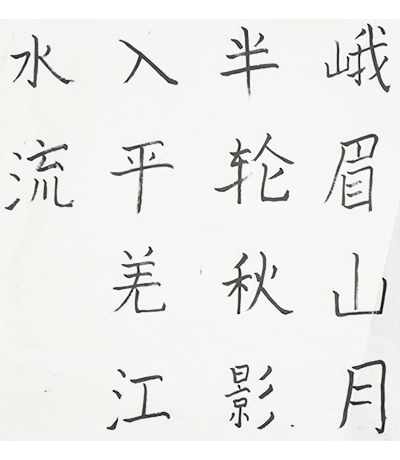 峨眉山月
半轮秋影
入平羌江
水流